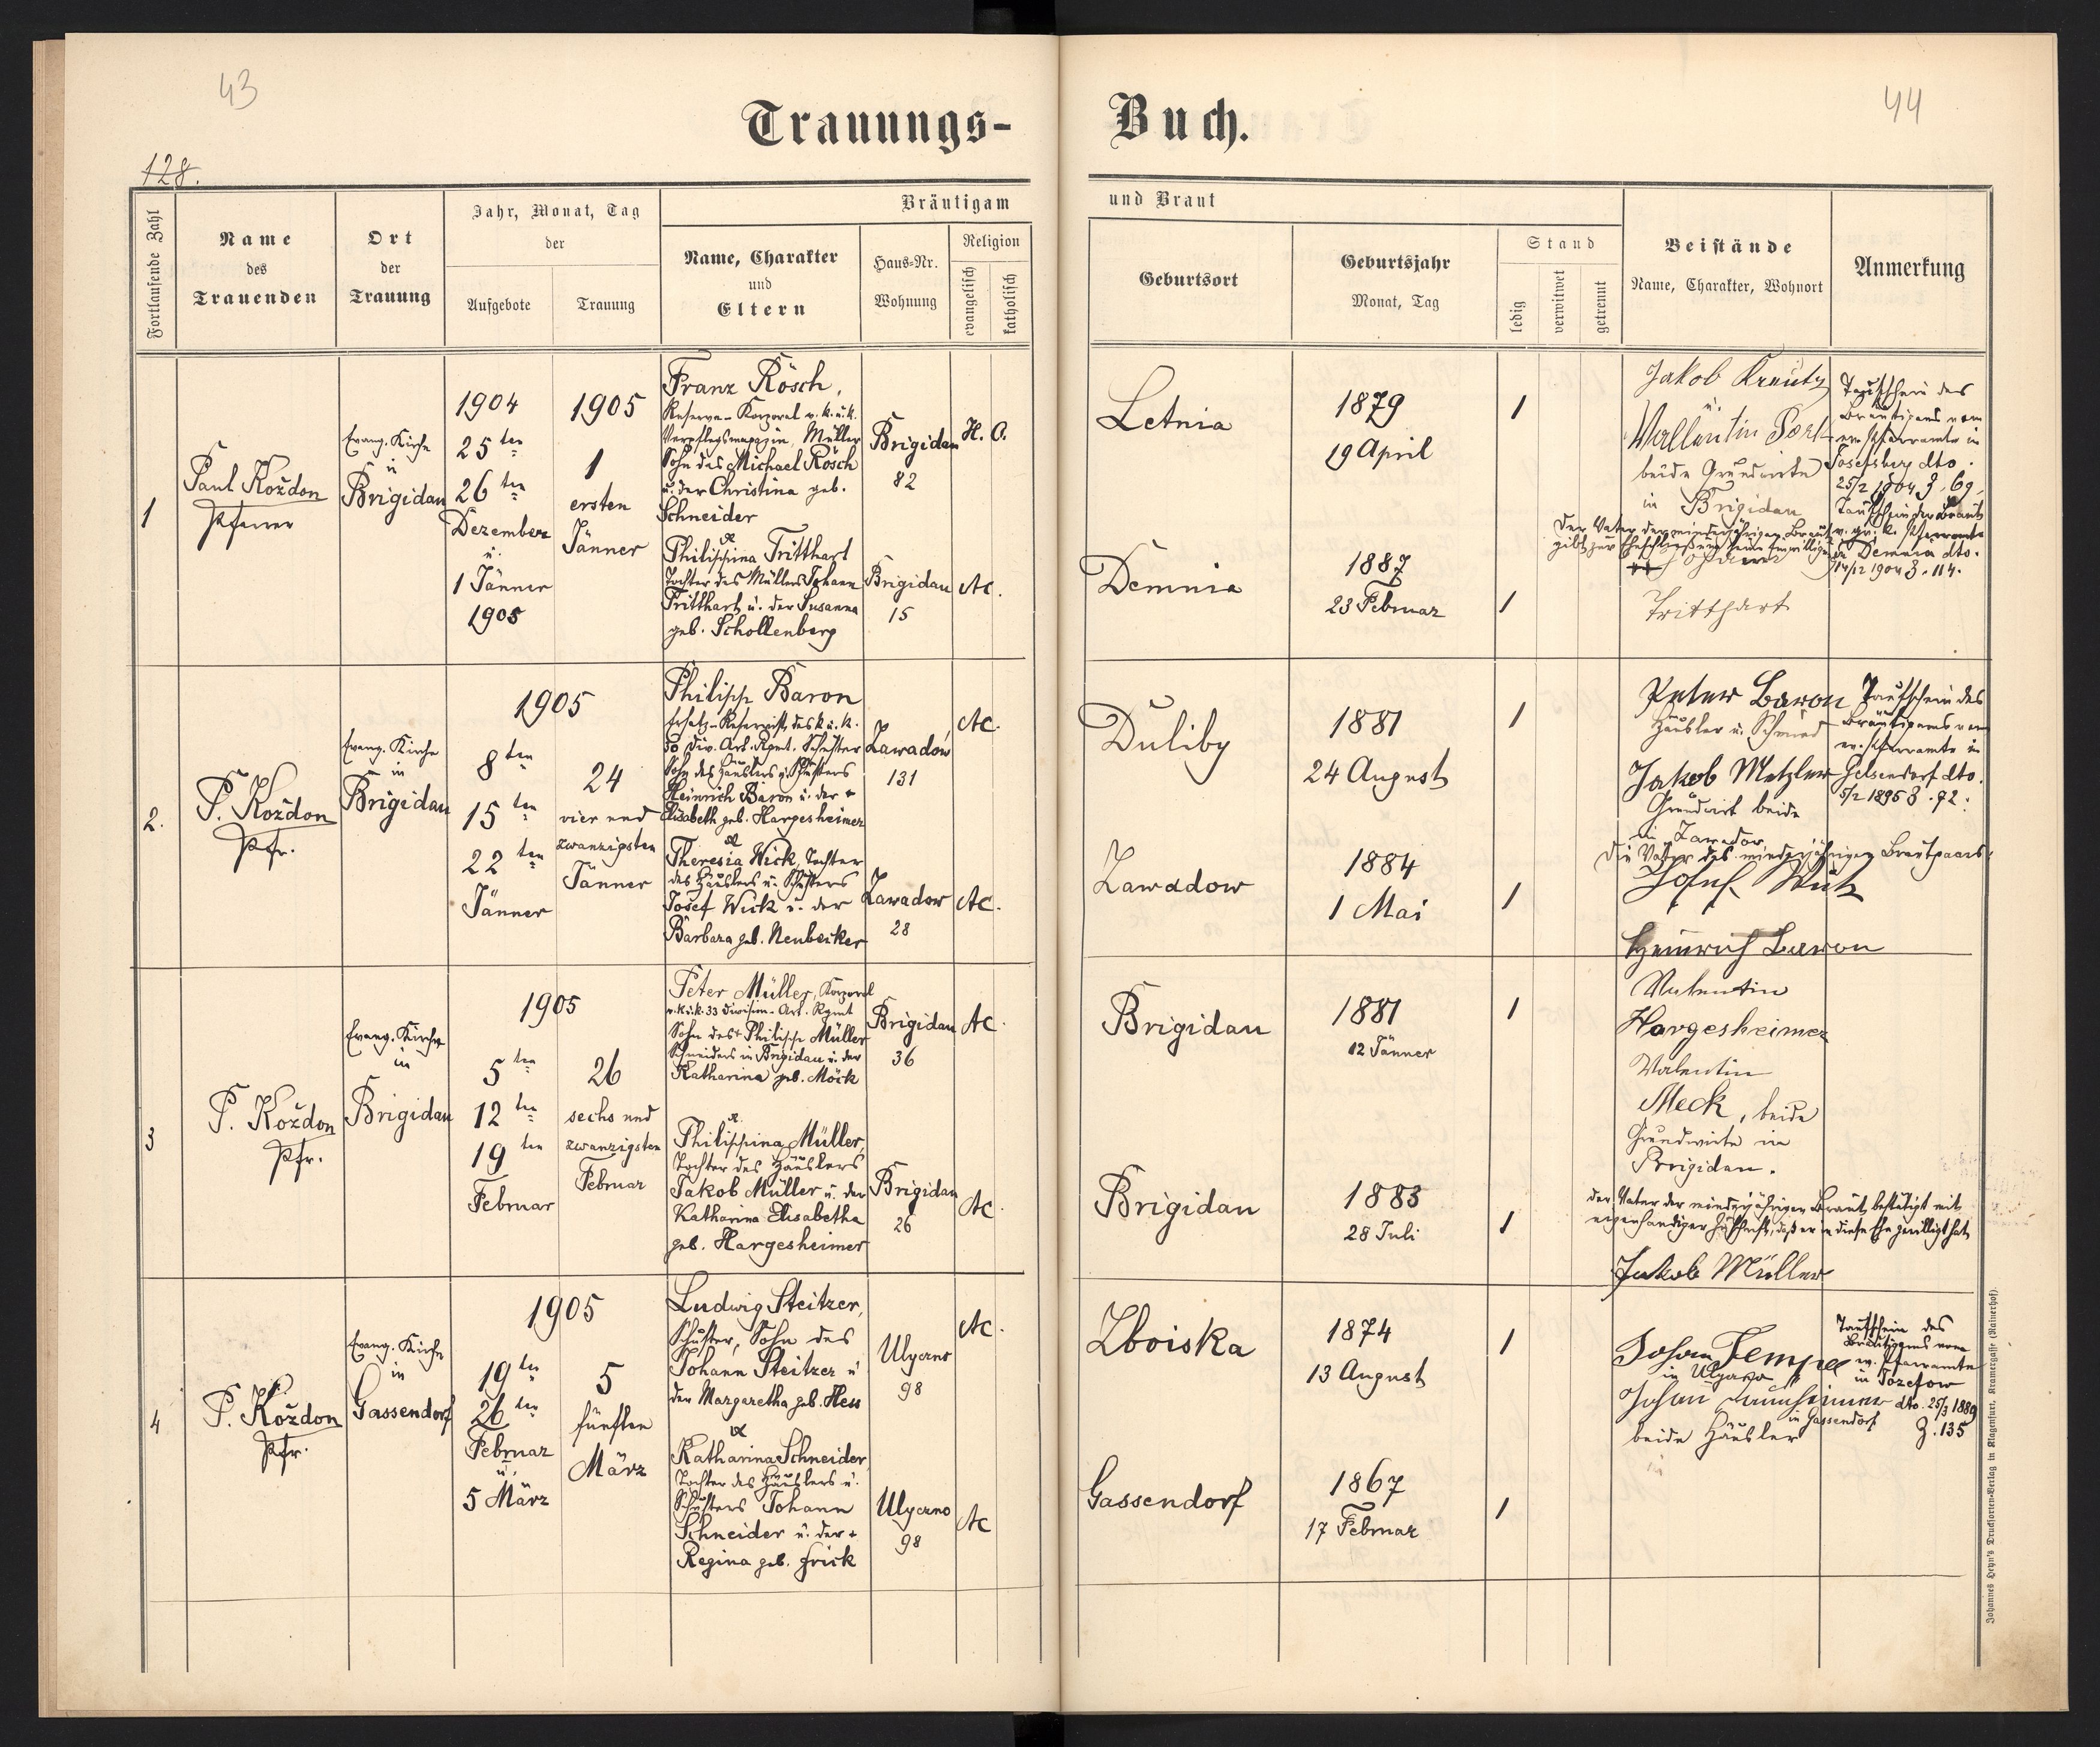 43
44
Trauungs-
Buch.
128.
Fortlaufende Zahl
Name
des
Trauenden
Ort
der
Trauung
Jahr, Monat, Tag
der
Aufgebote
Trauung
Bräutigam
Name, Charakter
und
Eltern
Haus-Nr.
Wohnung
Religion
evangelisch
katholisch
und Braut
Geburtsort
Geburtsjahr
Monat, Tag
Stand
ledig
verwitwet
getrennt
Beistände
Name, Charakter, Wohnort
Anmerkung
1
Paul Kożdon
Pfarrer
Evang. Kirche
in
Brigidau
1904
25ten
26ten
Dezember
u.
1 Jänner
1905
1905
1
ersten
Jänner
Franz Rösch,
Reserve-Korporal v. k. u. k.
Verpflegsmagazin, Müller
Sohn des Michael Rösch
u. der Christina geb.
Schneider
&
Philippina Tritthart
Tochter des Müllers Johann
Tritthart u. der Susanna
geb. Schollenberg
Brigidau
82
H. C.
Brigidau
15
AC.
Letnia
1879
19 April
1
Demnia
1887
23 Februar
1
Jakob Kreutz
u.
Wallentin
beide Grundwirte
in Brigidau
Der Vater der minderjährigen Braut
gibt zur Eheschließung seine Einwilligung
Tritthart
Taufschein des
Bräutigams vom
ev. Pfarramte in
Josefsberg dto.
25/2 1904 Z. 69.
Taufschein der Braut
v. gr. k. Pfarramte
in Demnia dto.
14/12 1904 Z. 114.
2.
P. Kożdon
Pfr.
Evang. Kirche
in
Brigidau
1905
8ten
15ten
22ten
Jänner
24
vier und
zwanzigsten
Jänner
Philipp Baron
Ersatz-Reservist des k. u. k.
30 Div. Art. Rgmt. Schuster
Sohn des Häuslers u. Schusters
Heinrich Baron u. der +
Elisabeth geb. Hargesheimer
&
Theresia Wick, Tochter
des Häuslers u. Schusters
Josef Wick u. der
Barbara geb. Neubecker
Zawadow
131
AC.
Zawadow
28
AC.
Duliby
1881
24 August
1
Zawadow
1884
1 Mai
1
Peter Baron
Häusler u. Schmied
Jakob Metzler
Grundwirt beide
in Zawadow
Die Väter des minderjährigen Brautpaars:
Josef Wick
Heinrich Baron
Taufschein des
Bräutigams vom
ev. Pfarramte in
Gelsendorf dto.
5/2 1895 Z. 72.
3
P. Kożdon
Pfr.
Evang. Kirche
in
Brigidau
1905
5ten
12ten
19ten
Februar
26
sechs und
zwanzigsten
Februar
Peter Müller, Korporal
v. k. u. k. 33 Division-Art. Rgmt
Sohn des + Philipp Müller
Schneiders in Brigidau u. der
Katharina geb. Möck
&
Philippina Müller,
Tochter des Häuslers
Jakob Müller u. der
Katharina Elisabetha
geb. Hargesheimer
Brigidau
36
AC.
Brigidau
26
AC.
Brigidau
1881
12 Jänner
1
Brigidau
1883
28 Juli
1
Valentin
Hargesheimer
Valentin
Meck, beide
Grundwirte in
Brigidau.
der Vater der minderjährigen Braut bestätigt mit
eigenhändiger Unterschrift, daß er in diese Ehe gewilligt hat
Jakob Müller
4
P. Kożdon
Pfr.
Evang. Kirche
in
Gassendorf
1905
19ten
26ten
Februar
u.
5 März
5
fünften
März
Ludwig Steitzer,
Schuster, Sohn des
Johann Steitzer u
der Margaretha geb. Hess
&
Katharina Schneider,
Tochter des Häuslers u.
Schusters Johann
Schneider u. der +
Regina geb. Frick
Ulyczno
98
AC.
Ulyczno
98
AC
Zboiska
1874
13 August
1
Gassendorf
1867
17 Februar
1
Johan Tempel
in Ulyczno
Johan
in Gassendorf
beide Häusler
Taufschein des
Bräutigams vom
ev. Pfarramte
in Jozefow
dto. 25/3 1889
Z. 135
Johannes Heyn's Drucksorten-Verlag in Klagenfurt, Kramergasse (Rainerhof).